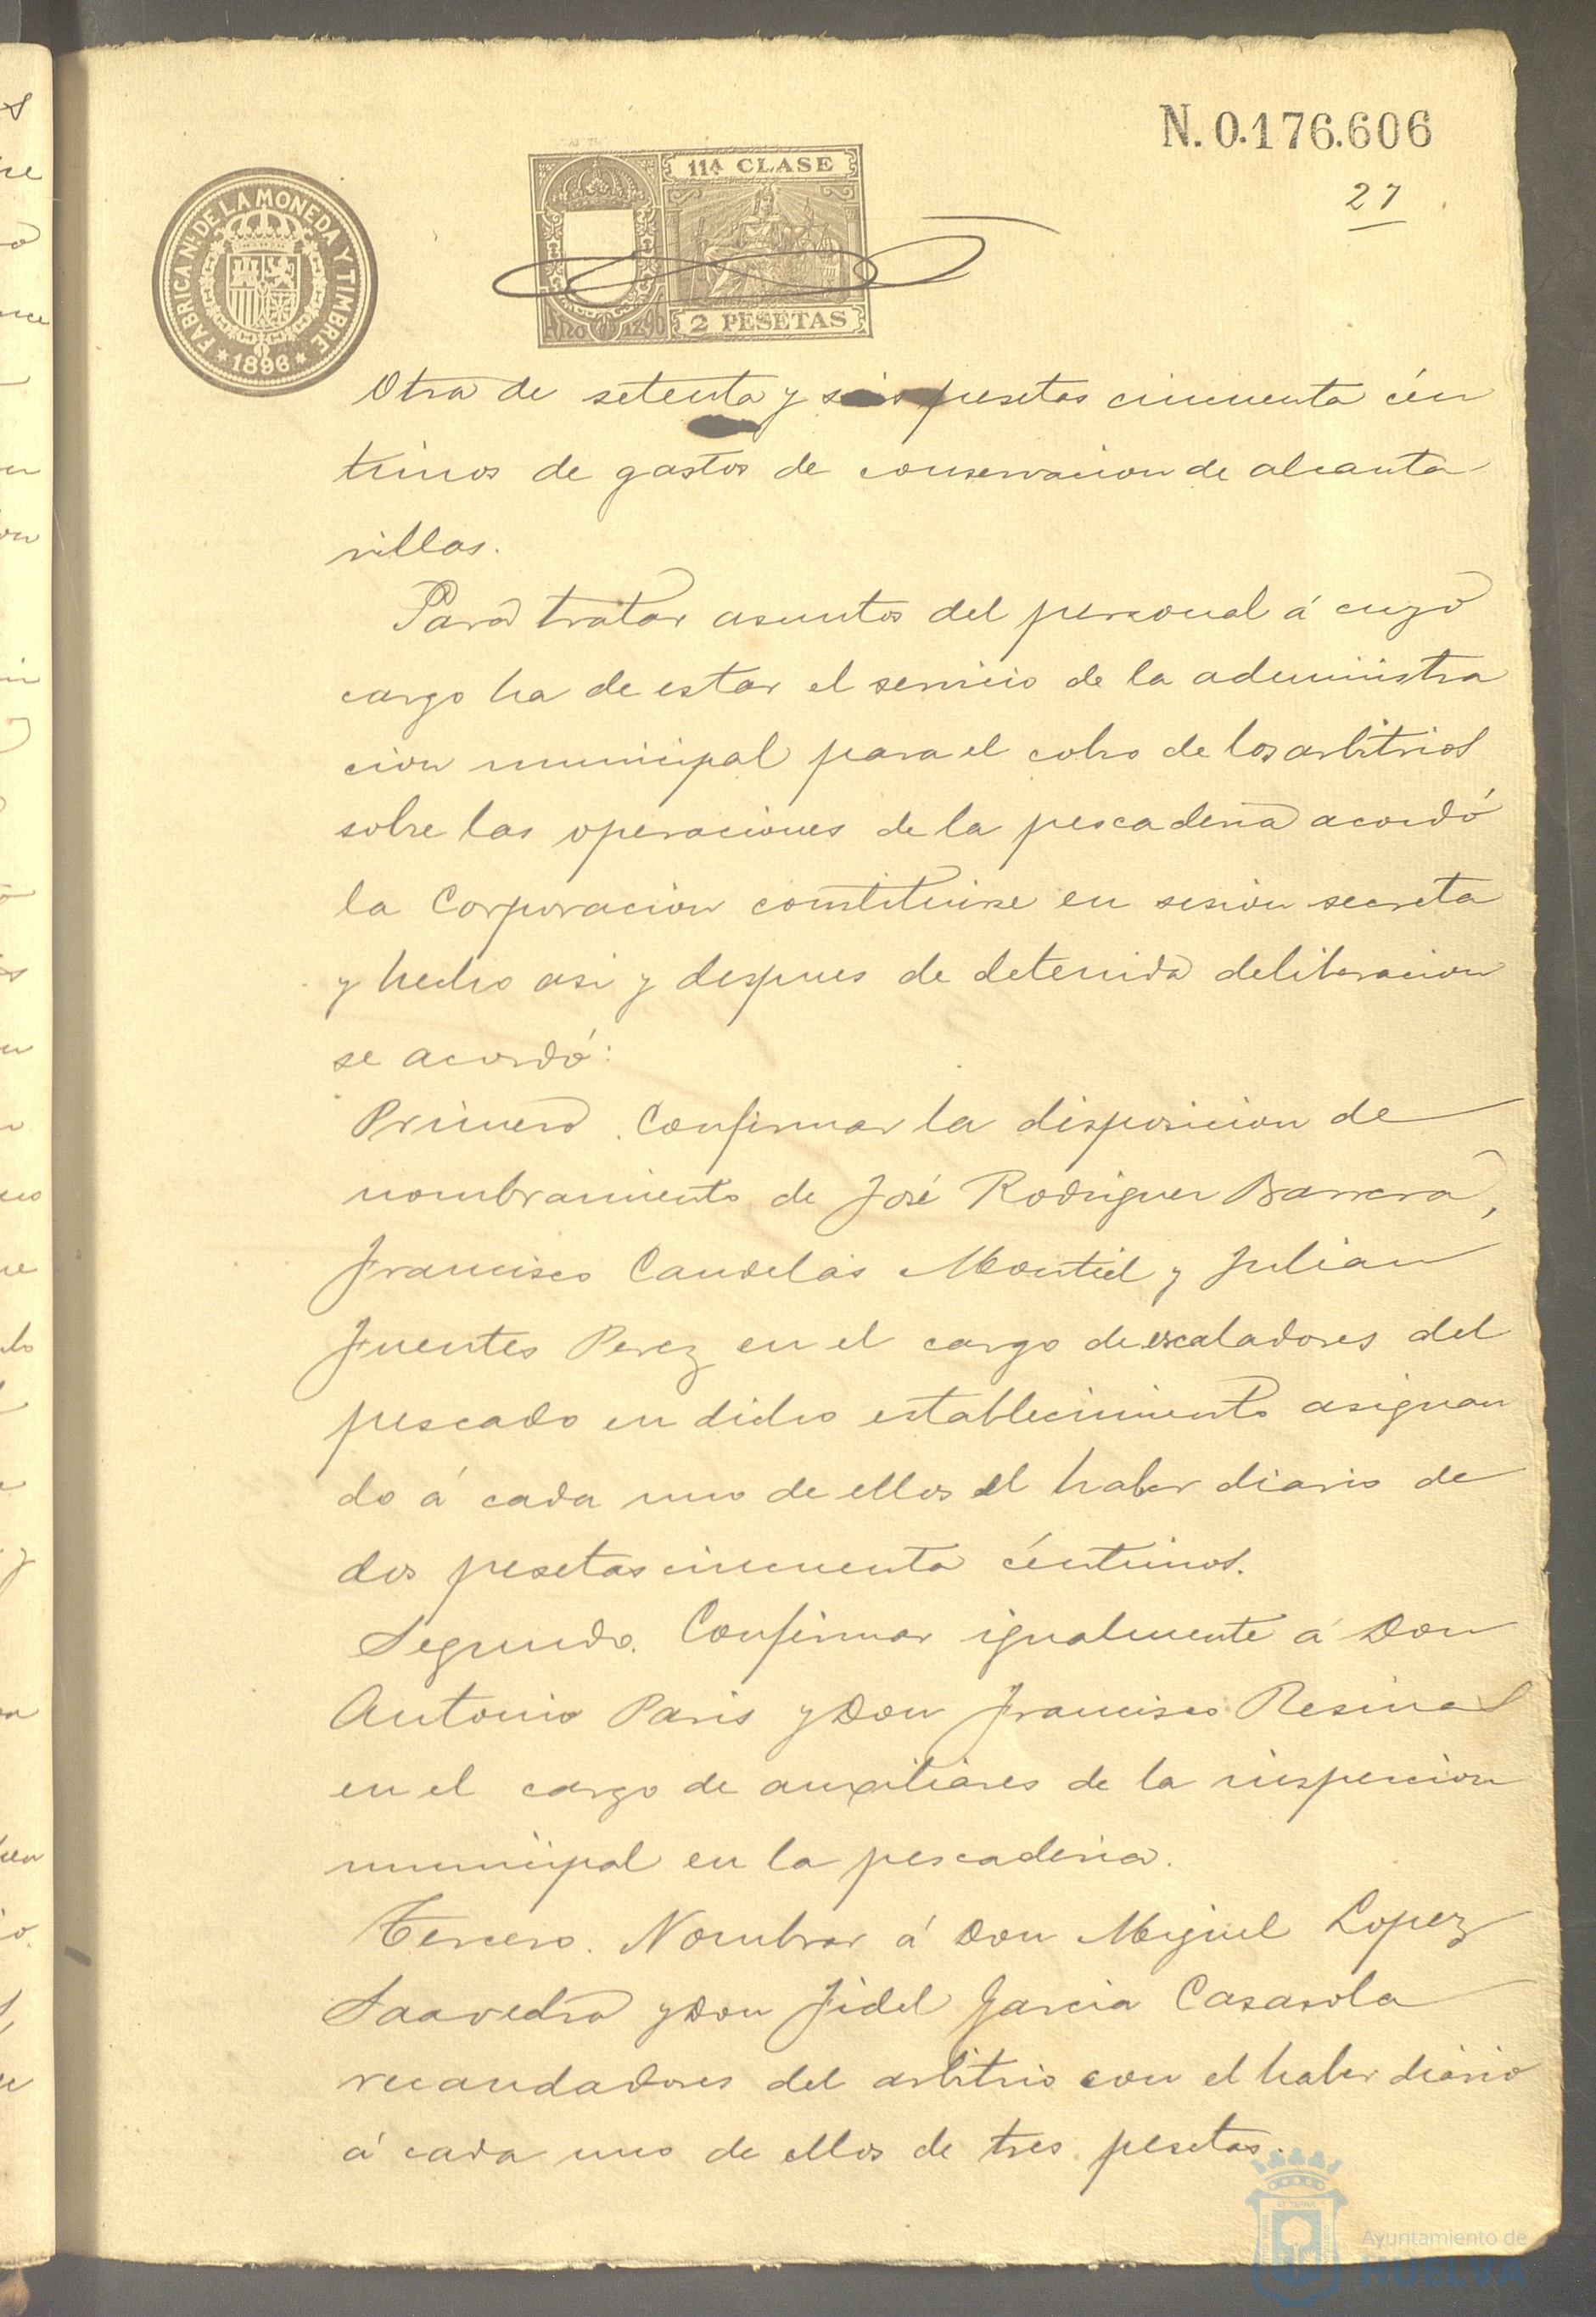 N. 0.176.606
27
FABRICA NL. DE LA MONEDA Y TIMBRE
* 1896 *
11ª CLASE
AÑO 1896
2 PESETAS
Otra de setenta y seis pesetas cincuenta cén
timos de gastos de conservacion de alcanta
rillas.
Para tratar asuntos del personal á cuyo
cargo ha de estar el servicio de la administra
cion municipal para el cobro de los arbitrios
sobre las operaciones de la pescaderia acordó
la Corporacion constituirse en sesion secreta
y hecho asi y despues de detenida deliberacion
se acordó:
Primero. Confirmar la disposicion de
nombramiento de José Rodriguez Barrera,
Francisco Candelas Montiel y Julian
Fuentes Perez en el cargo de escaladores del
pescado en dicho establecimiento asignan
do á cada uno de ellos el haber diario de
dos pesetas cincuenta céntimos.
Segundo. Confirmar igualmente á Don
Antonio Paris y Don Francisco Resinas
en el cargo de auxiliares de la inspeccion
municipal en la pescaderia.
Tercero. Nombrar á Don Miguel Lopez
Saavedra y Don Fidel Garcia Casasola
recaudadores del arbitrio con el haber diario
á cada uno de ellos de tres pesetas.
Ayuntamiento de
HUELVA